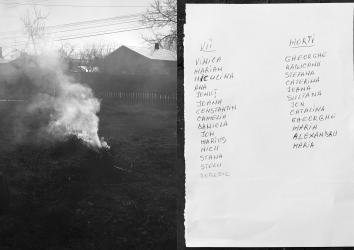 VII
VINICA
MARIAN
NICULINA
ANA
IONUȚ
IOANA
CONSTANTIN
CAMELIA
DANIELA
ION
MARIUS
NICU
STANA
MORȚI
GHEORGHE
STEFANA
CATERINA
IOANA
SULTANA
ION
CATALINA
GHEORGHE
MARIA
ALEXANDRU
MARIA